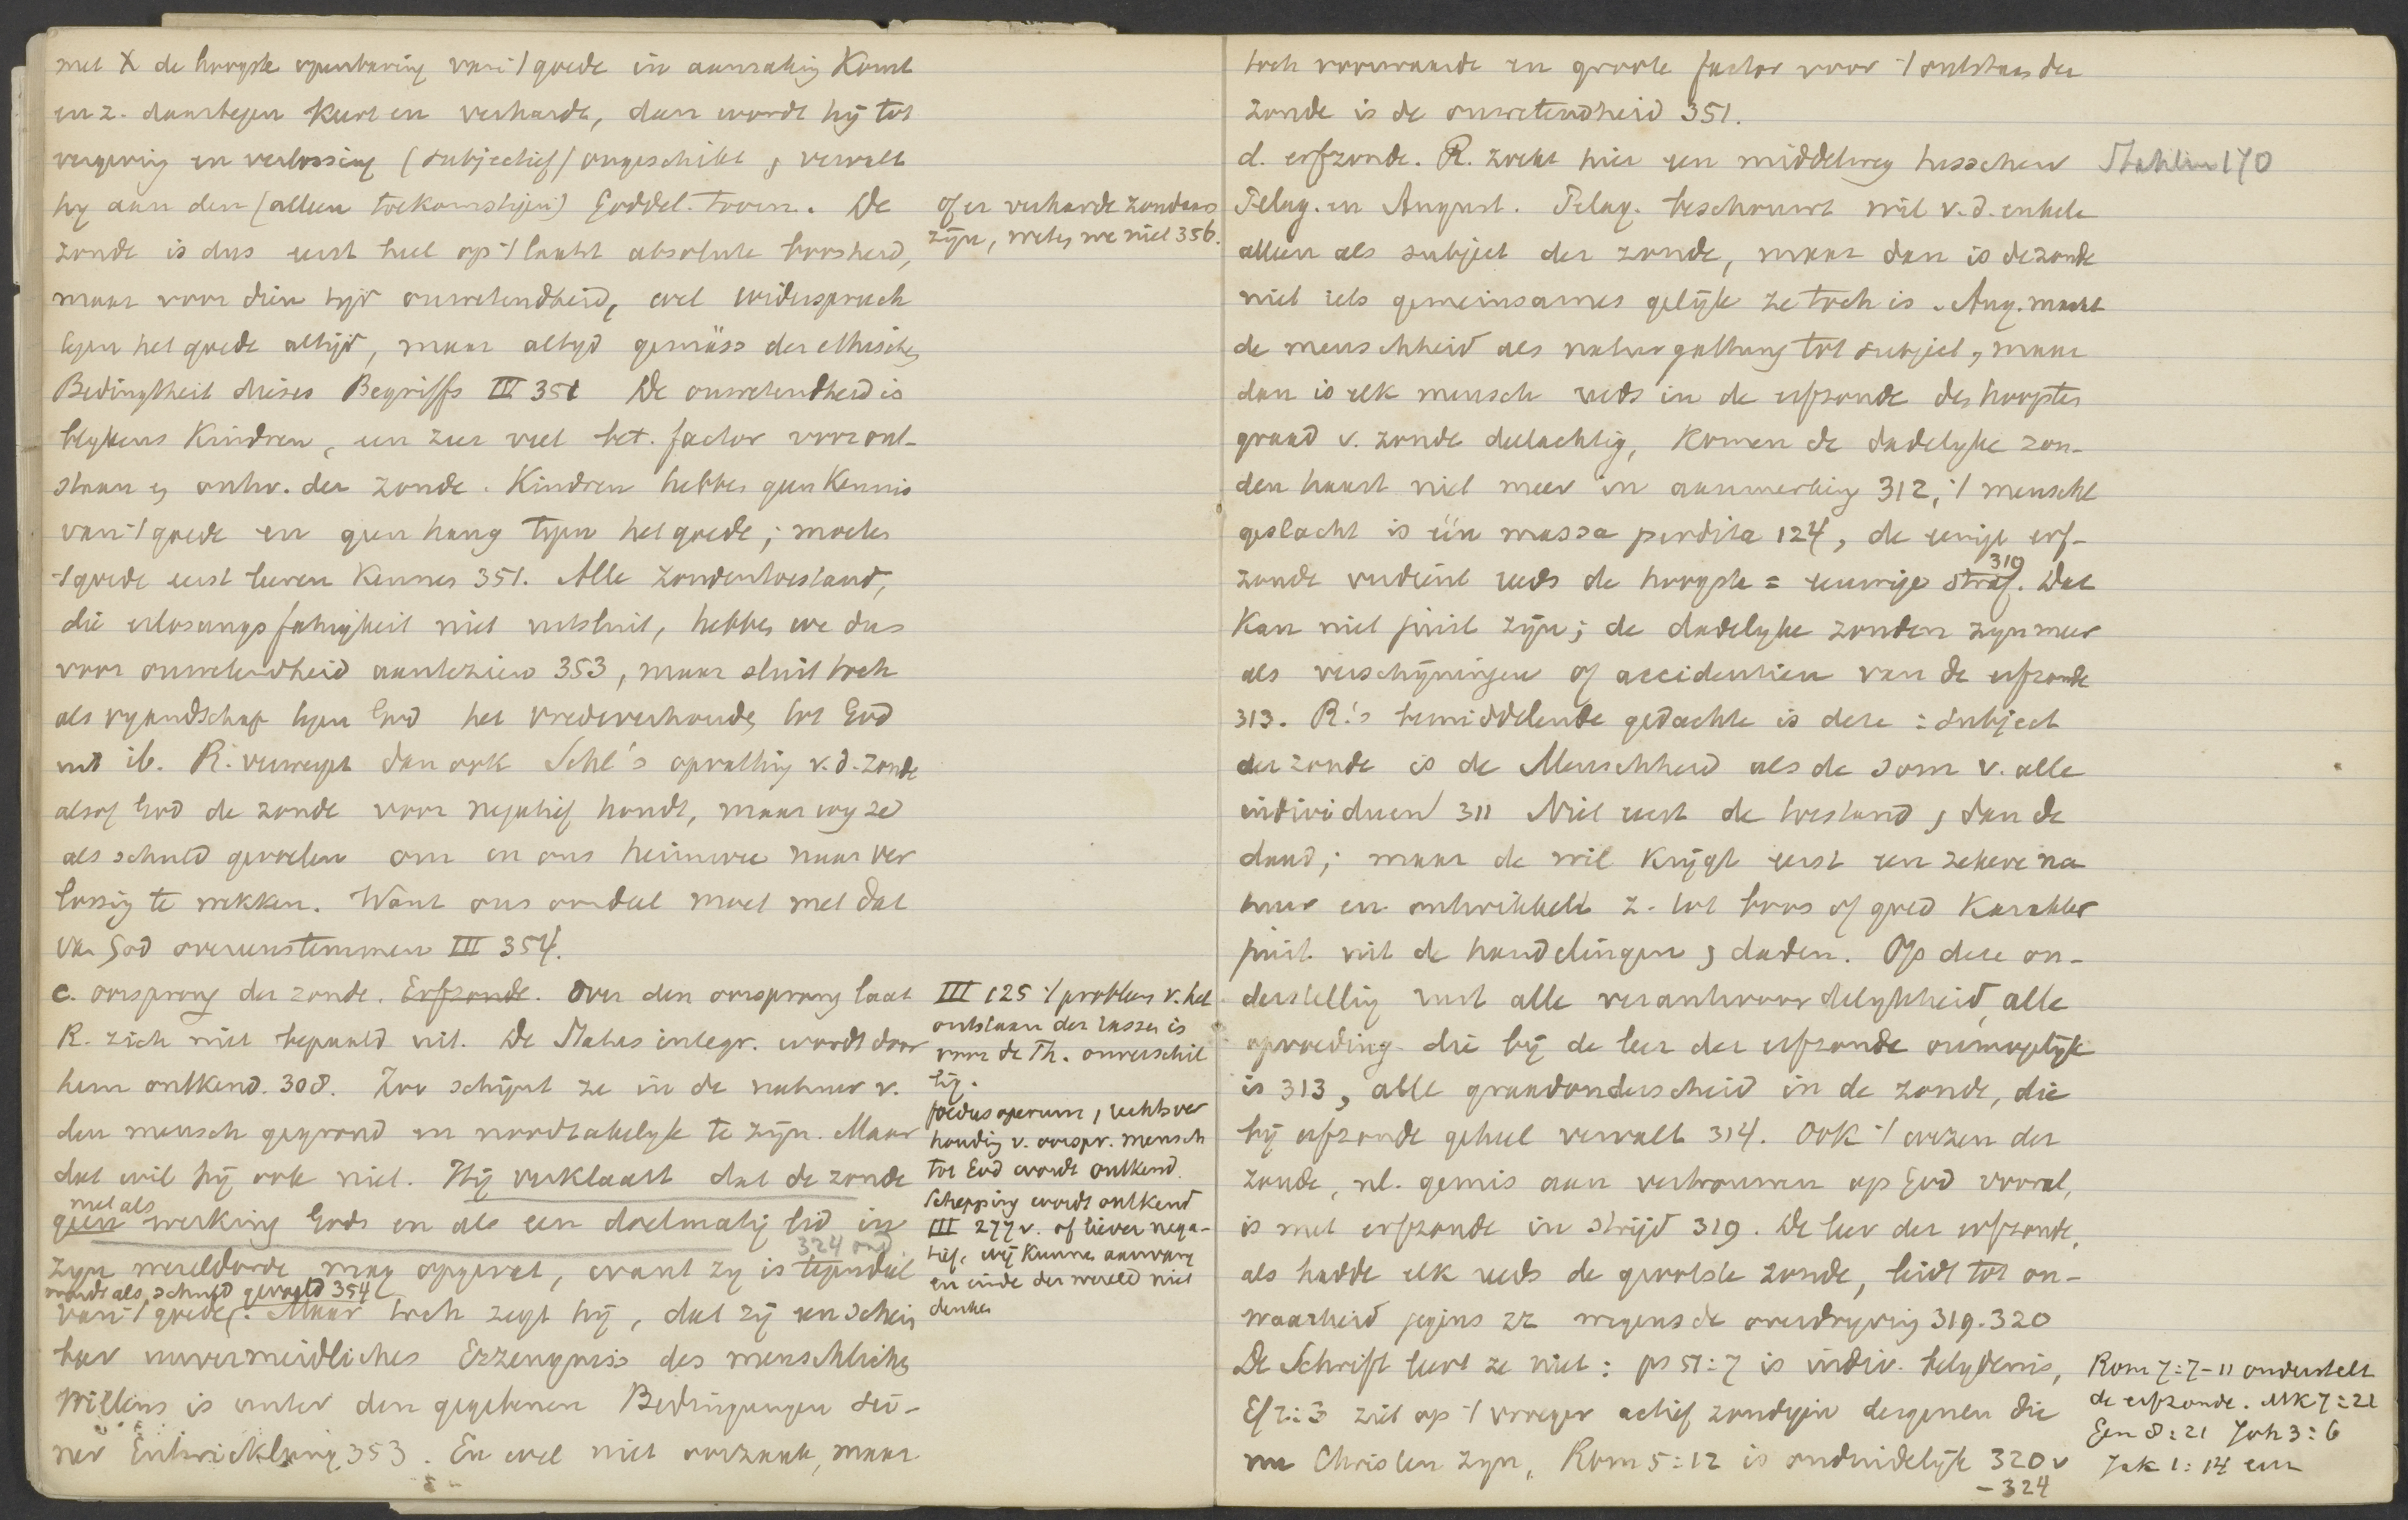 met X de hoogste openbaring van 't goede in aanraking komt
en z. daartegen keert en verhardt, dan wordt hij tot
vergeving en verlossing (subjectief) ongeschikt, vervalt
hy aan den (alleen toekomstigen) Goddel. toorn. De
zonde is dus eerst heel op 't laatst absolute boosheid,
maar voor dien tijd onwetendheid, wel widerspruch
tegen het goede altijd, maar altyd gemäss der ethischen
Bedingtheit dieses Begriffs III 351 De onwetendheid is
blykens Kindren, een zeer veel bet. factor voor ont-
staan en ontw. der zonde. Kindren hebben geen Kennis
van 't goede en geen hang tegen het goede; moeten
't goede eerst leeren Kennen 351. Alle zondentoestand,
die erlosungsfahigkeit niet uitsluit, hebben we dus
voor onwetendheid aantezien 353, maar sluit toch
als vyandschap tegen God het vredeverhouding tot God
uit ib. R. verwerpt dan ook Schl's opvatting v.d. zonde
alsof God de zonde voor negatief houdt, maar wy ze
als schuld gevoelen om in ons heimwee naar ver
lossing te wekken. Want ons oordeel moet met dat
van God overeenstemmen III 354.
of er verharde zondaars
zijn, weten we niet 356.
c. oorsprong der zonde. Erfzonde. Over den oorsprong laat
R. zich niet bepaald uit. De Status integr. wordt door
hem ontkend. 308. Zoo schijnt ze in de natuur v.
den mensch gegrond en noodzakelyk te zijn. Maar
dat wil hij ook niet. Hij verklaart dat de zonde
niet als
geen werking Gods en als een doelmatig lid in
324 ond.
zyn wereldorde mag opgevat, want zy is tegendeel
wordt als schuld gevoeld 354
van 't goede. Maar toch zegt hij, dat zij een schein
bar unvermeidliches Erzeugniss des menschlichen
Willens is unter den gegebenen Bedingungen sei-
ner Entwicklung 353. En wel niet oorzaak, maar
III 125 't probleem v. het
ontstaan der rassen is
voor de Th. onverschil
lig.
foedus operum, rechtsver
houding v. oorspr. mensch
tot God wordt ontkend.
Schepping wordt ontkend
III 277 v. of liever nega-
tief, wij kunnen aanvang
en einde der wereld niet
denken
toch voorwaarde en groote factor voor 't ontstaan der
zonde is de onwetendheid 351.
d. erfzonde. R. zoekt hier een middelweg tusschen
Pelag. en August. Pelag. beschouwt wil v.d. enkele
alleen als subject der zonde, maar dan is de zonde
niet iets gemeinsames gelijk ze toch is. Aug. maakt
de menschheid als naturgattung tot subject, maar
dan is elk mensch reeds in de erfzonde des hoogsten
graad v. zonde deelachtig, komen de dadelyke zon-
den haast niet meer in aanmerking 312, 't menschl
geslacht is één massa perdita 124, de eenige erf-
319
zonde verdient reeds de hoogste = eeuwige straf. Dat
kan niet juist zijn; de dadelyke zonden zyn meer
als verschijningen of accidentien van de erfzonde
313. R.'s bemiddelende gedachte is deze: Subject
der zonde is de Menschheid als de som v. alle
individuen 311 Niet eerst de toestand, dan de
daad; maar de wil krijgt eerst een zekere na
tuur en ontwikkelt z. tot boos of goed Karakter
juist uit de handelingen, daden. Op deze on-
derstelling rust alle verantwoordelykheid, alle
opvoeding die bij de leer der erfzonde onmogelijk
is 313, alle graadonderscheid in de zonde, die
bij erfzonde geheel vervalt 314. Ook 't wezen der
zonde, nl. gemis aan vertrouwen op God vooral,
is met erfzonde in strijd 319. De leer der erfzonde,
als hadde elk reeds de grootste zonde, leidt tot on-
waarheid jegens zz wegens de overdryving 319.320
De Schrift leert ze niet: ps 51:7 is indiv. belydenis,
Ef 2:3 ziet op 't vroeger actief zondigen dergenen die
nu Christen zyn, Rom 5:12 is onduidelijk 320 v
-324
Stahlin 170
Rom 7:7-11 onderstelt
de erfzonde. Mk 7:21
Gen 8:21 Joh 3:6
Jak 1:14 enz